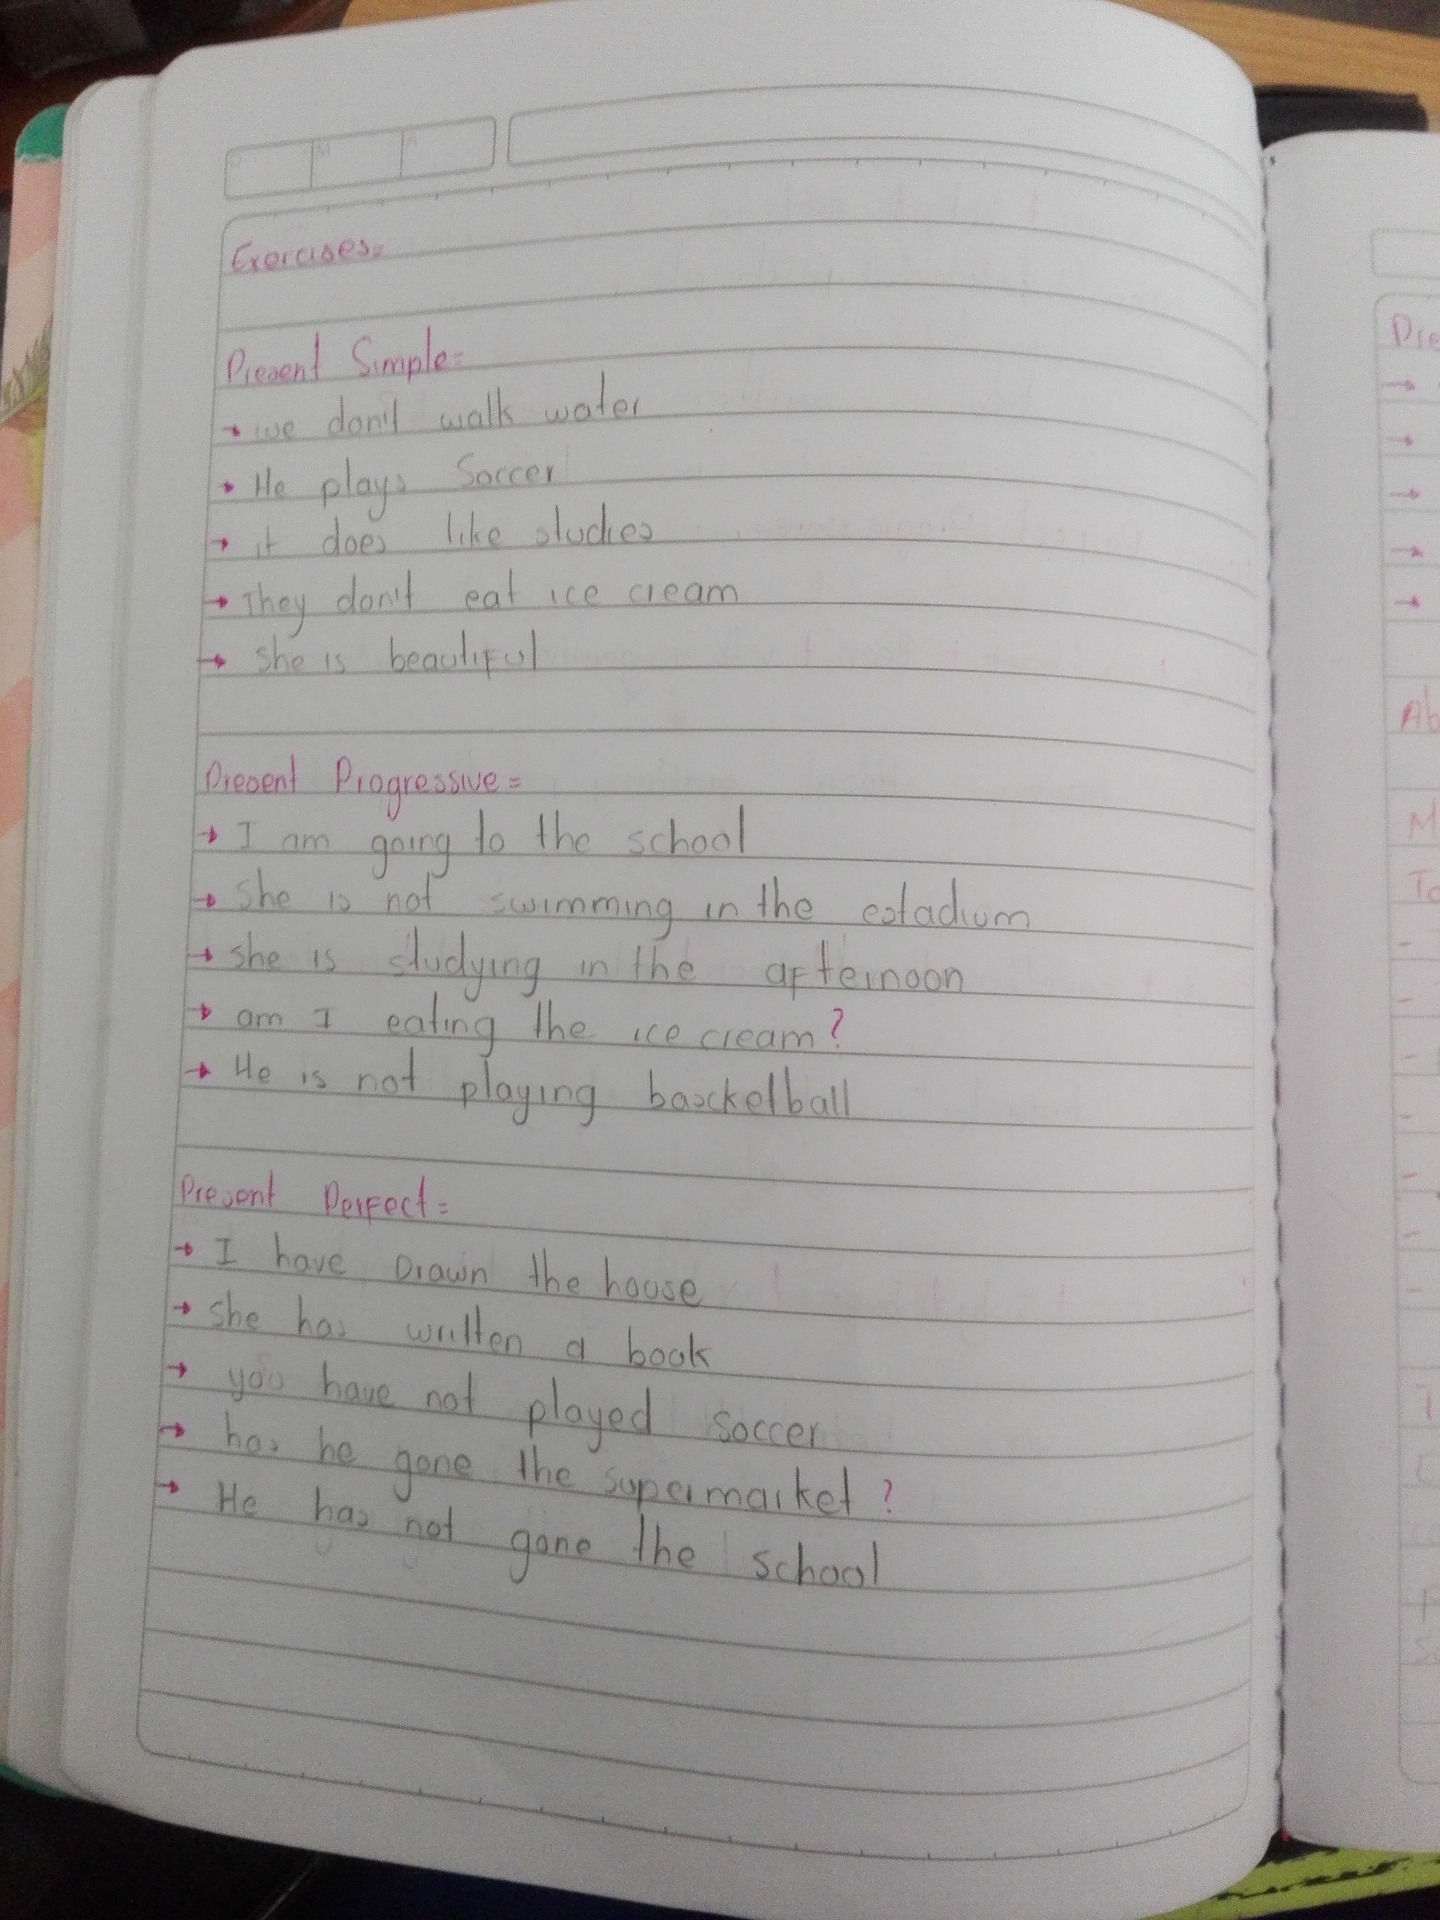 Exercises=
Present Simple=
→ we don't walk water
→ He plays Soccer
→ it does like studies
→ They don't eat ice cream
→ she is beautiful
Present Progressive=
→ I am going to the school
→ she is not swimming in the estadium
→ she is studying in the afternoon
→ am I eating the ice cream?
→ He is not playing bascketball
Present Perfect=
→ I have Drawn the house
→ she has written a book
→ you have not played soccer
→ has he gone the supermarket?
→ He has not gone the school
Pre
→
→
→
→
→
Ab
M
To